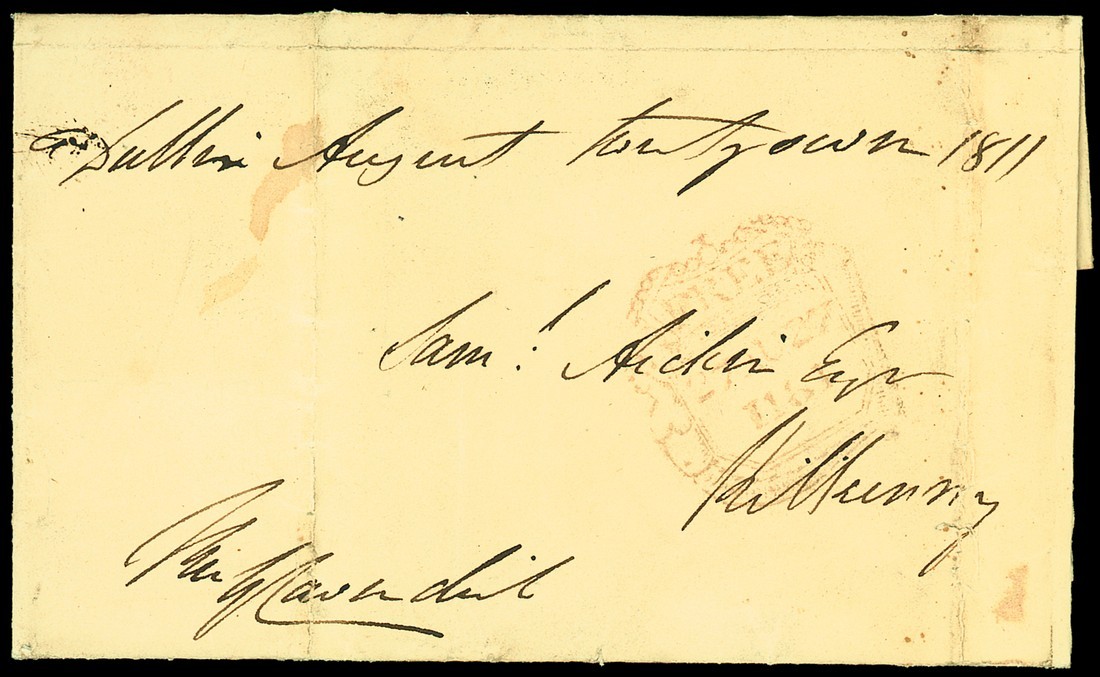 Dublin August twenty seven 1811
FREE
AU 27
1811
Saml. Aickin Esqr
Kilkenny
Cavendish